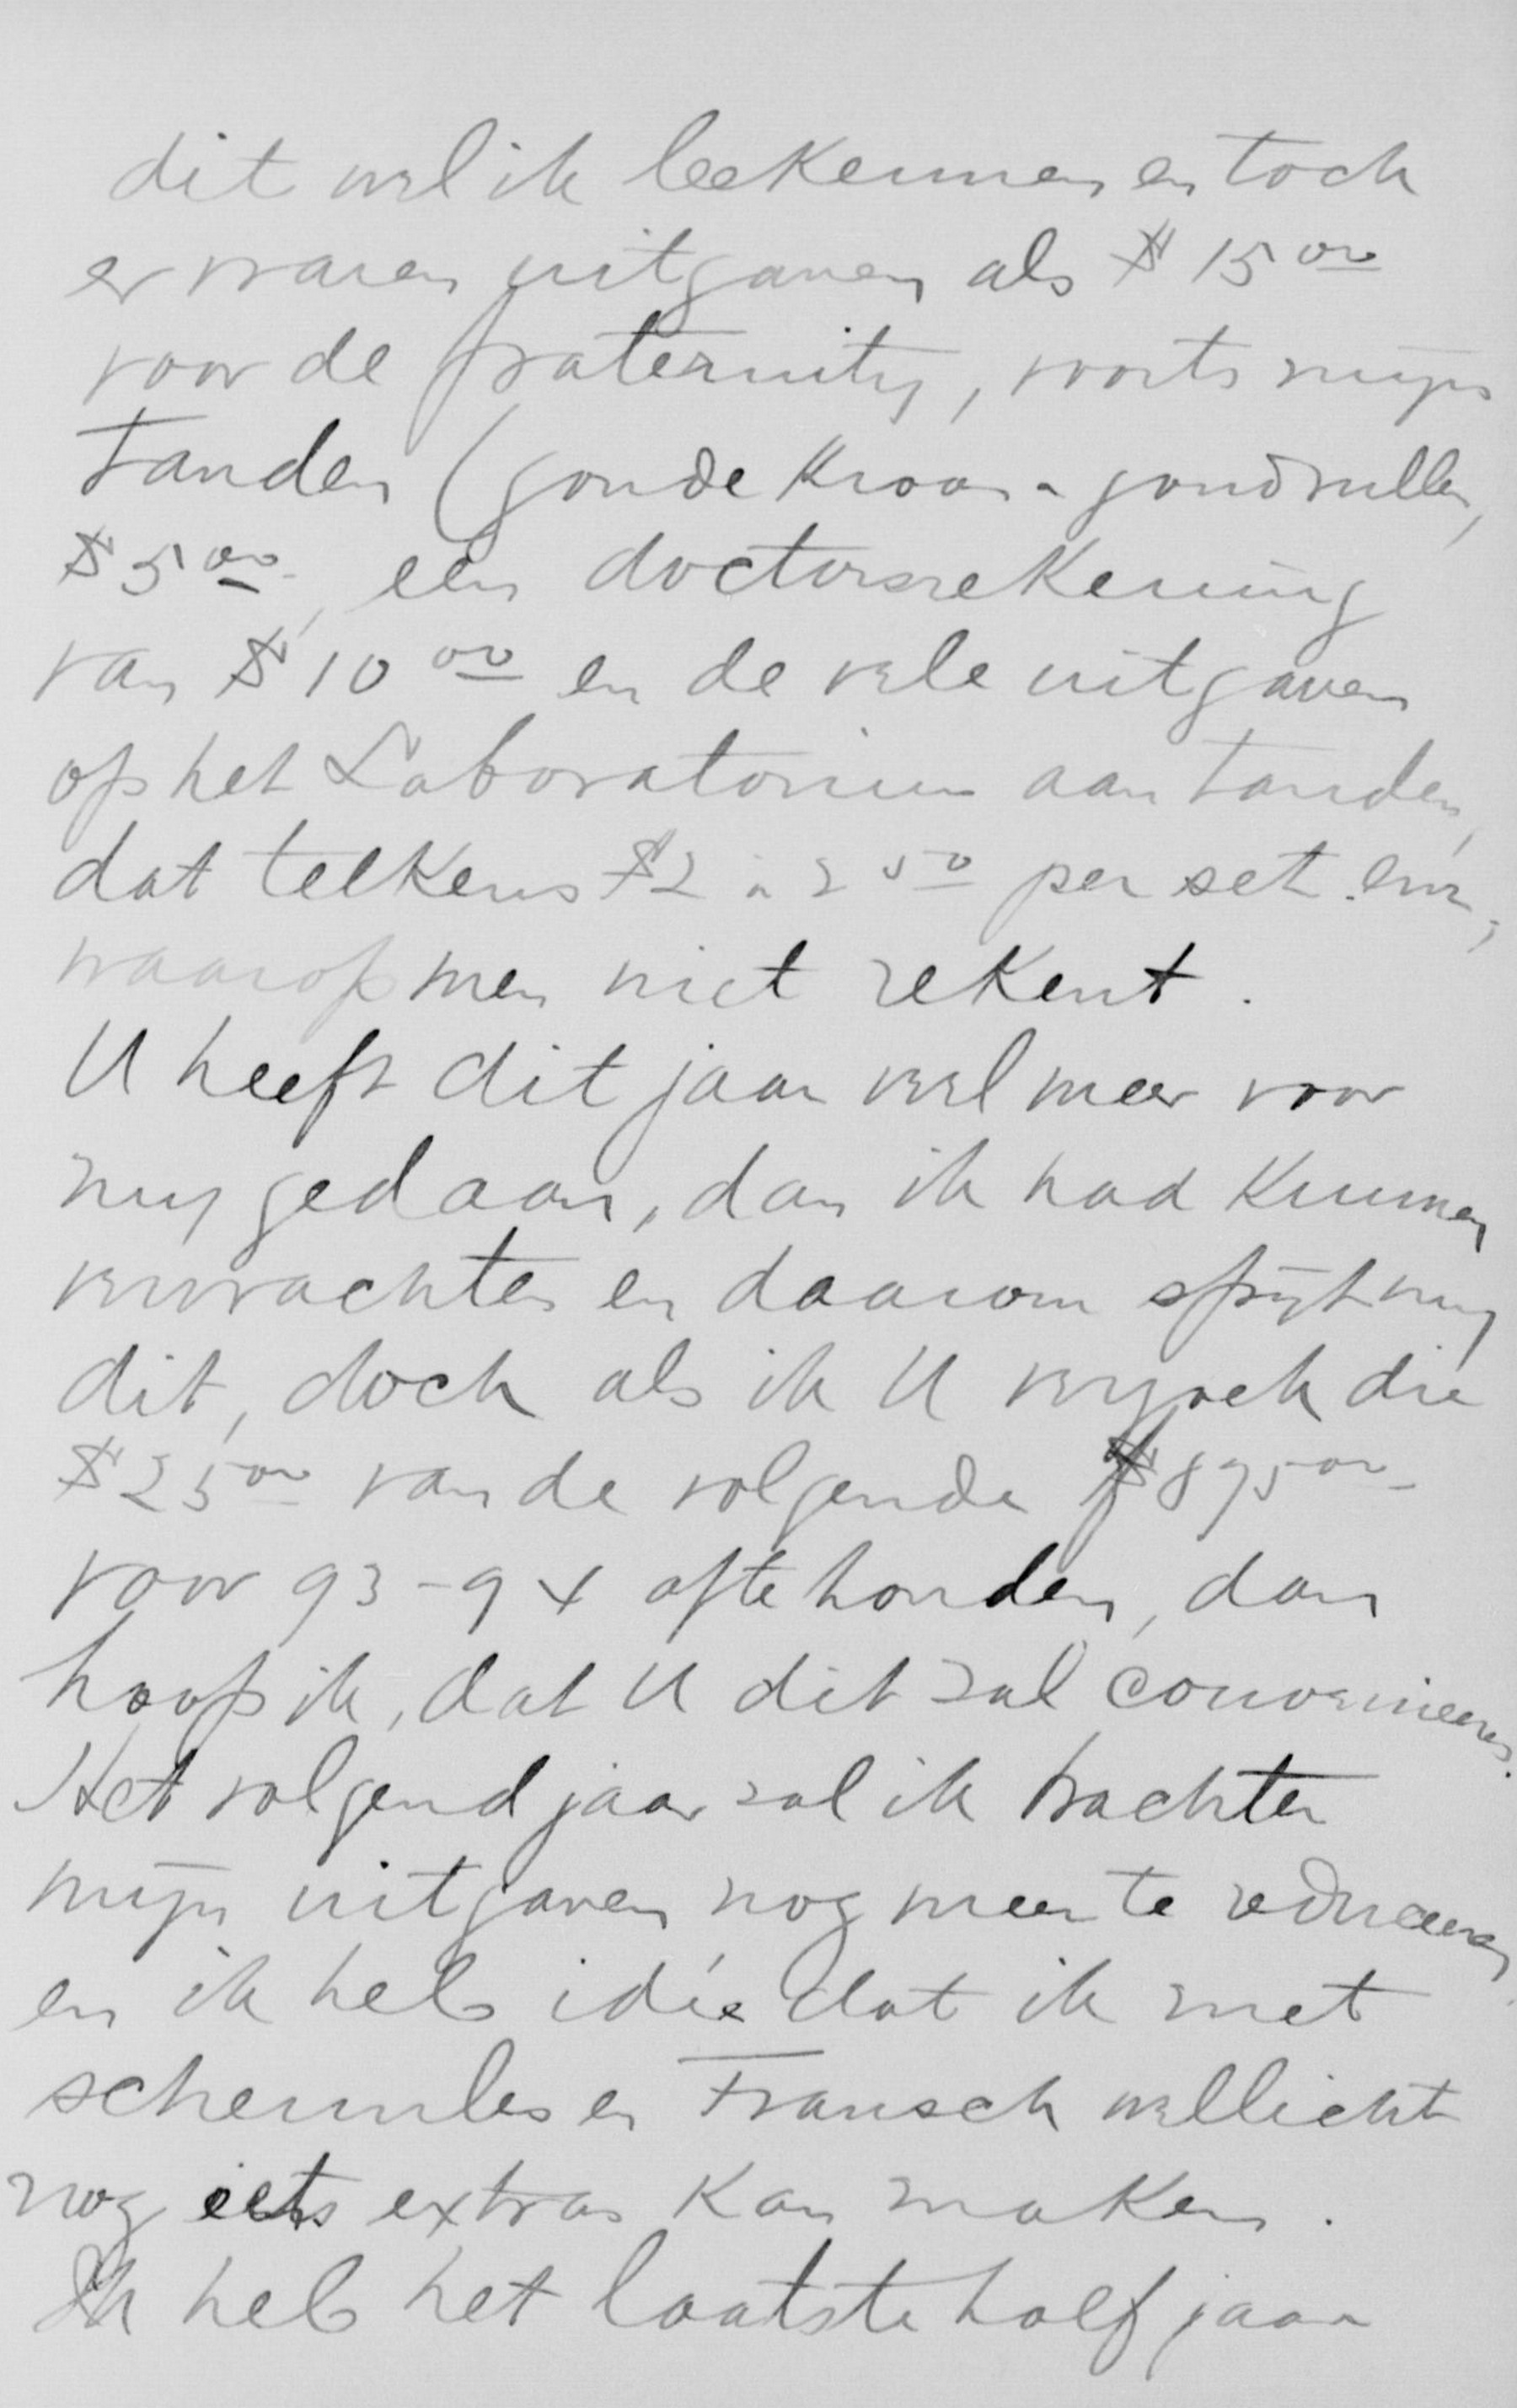 dit wel ik bekennen en toch
er waren uitgaven als $ 15 00
voor de fraternity, voorts mijn
tanden (goude kroon - goudvullen,
$ 5 00, een doctorsrekening
van $ 10 00 en de vele uitgaven
op het Laboratorium aan tanden,
dat telkens $2 à 2 50 per set enz,
waarop men niet rekent.
U heeft dit jaar veel meer voor
mij gedaan, dan ik had kunnen
verwachten en daarom spijt mij
dit, doch als ik U verzoek die
$ 25 00 van de volgende $ 875 00
voor 93-94 af te houden, dan
hoop ik, dat U dit zal convenieeren.
Het volgend jaar zal ik trachten
mijn uitgaven nog meer te reduceeren
en ik heb idée dat ik met
schermles en Fransch wellicht
nog iets extras kan maken.
Ik heb het laatste half jaar